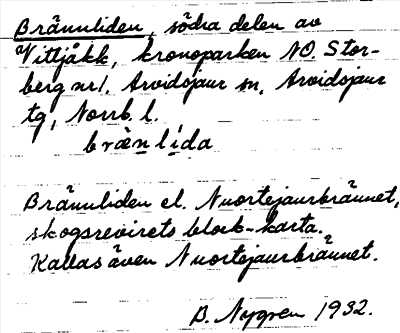 Brännliden, södra delen av
Vittjåkk, kronoparken NO. Stor-
berg nr 1, Arvidsjaur sn, Arvidsjaur
tg, Norrb. l.
bræ̀nlída
Brännliden el. Nuortejaurbrännet,
skogsrevirets block-karta.
Kallas även Nuortejaurbrännet.
B. Nygren 1932.